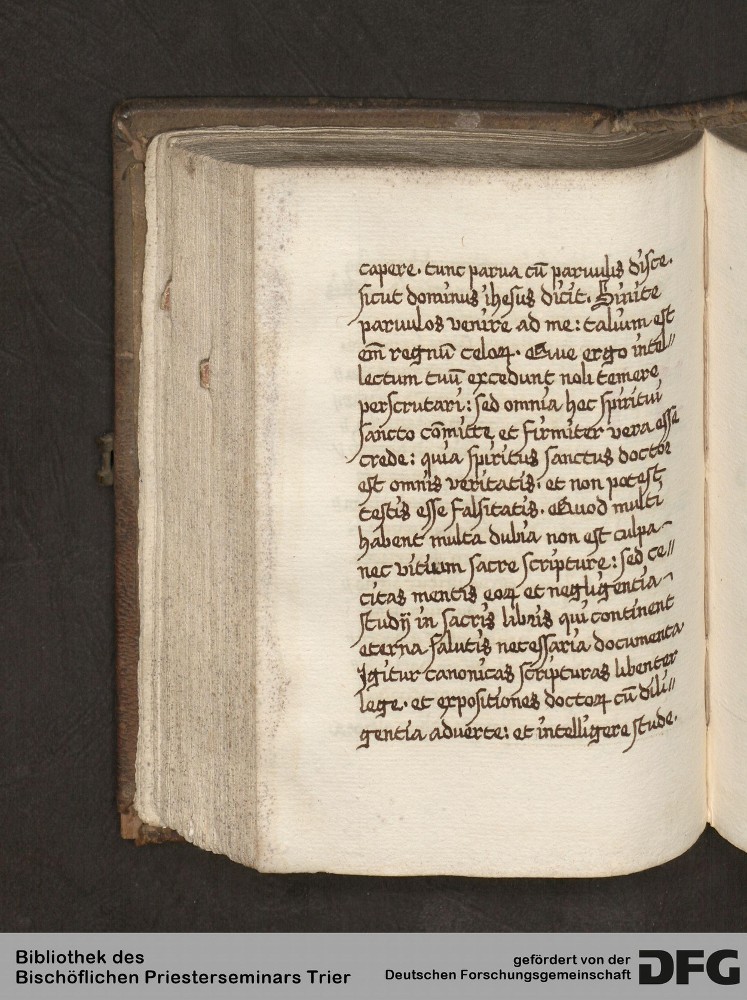 capere. tunc parua cū paruulis disce.
sicut dominus ihesus dicit. Sinite
paruulos venire ad me: talium est
em̄ regnū celoꝝ. Que ergo intel//
lectum tuū excedunt noli temere
perscrutari: sed omnia hec spiritui
sancto cōmitte et firmiter vera esse
crede: quia spiritus sanctus doctor
est omnis veritatis. et non potest
testis esse falsitatis. Quod multi
habent multa dubia non est culpa
nec vitium sacre scripture: sed ce//
citas mentis eoꝝ et negligentia
studij in sacris libris qui continent
eterna salutis necessaria documenta
Igitur canonicas scripturas libenter
lege. et expositiones doctoꝝ cū dili//
gentia aduerte: et intelligere stude.
Bibliothek des
Bischöflichen Priesterseminars Trier
gefördert von der
Deutschen Forschungsgemeinschaft
DFG